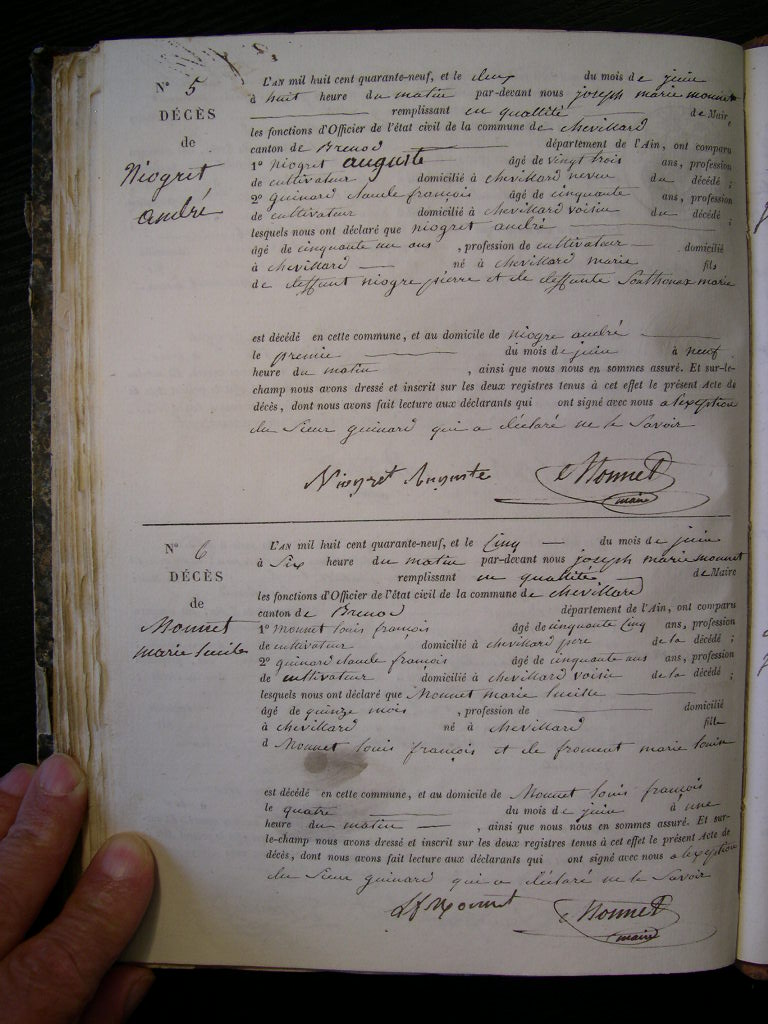 N° 5
DÉCÈS
de
Niogret
andré
L'AN mil huit cent quarante-neuf, et le deux du mois de juin
à huit heure du matin par-devant nous joseph marie monnet
remplissant en quallité de Maire
les fonctions d'Officier de l'état civil de la commune de chevillard
canton de Brenod département de l'Ain, ont comparu
1° Niogret auguste âgé de vingt trois ans, profession
de cultivateur domicilié à chevillard neveu du décédé ;
2° guinard claude françois âgé de cinquante ans, profession
de cultivateur domicilié à chevillard voisin du décédé ;
lesquels nous ont déclaré que niogret andré
âgé de cinquante un ans , profession de cultivateur domicilié
à chevillard né à chevillard marie fils
de deffunt niogre pierre et de deffunte Southonax marie
est décédé en cette commune, et au domicile de niogre andré
le premie du mois de juin à neuf
heure du matin , ainsi que nous nous en sommes assuré. Et sur-le-
champ nous avons dressé et inscrit sur les deux registres tenus à cet effet le présent Acte de
décès, dont nous avons fait lecture aux déclarants qui ont signé avec nous a lexception
du Sieur guinard qui a déclaré ne le Savoir
Niogret Auguste Monnet
maire
N° 6
DÉCÈS
de
Monnet
marie lucille
L'AN mil huit cent quarante-neuf, et le Cinq du mois de juin
à Six heure du matin par-devant nous joseph marie monnet
remplissant en quallité de Maire
les fonctions d'Officier de l'état civil de la commune de chevillard
canton de Brenod département de l'Ain, ont comparu
1° monnet louis françois âgé de cinquante Cinq ans, profession
de cultivateur domicilié à chevillard pere de la décédé ;
2° guinard claude françois âgé de cinquante ans ans, profession
de cultivateur domicilié à chevillard voisin de la décédé ;
lesquels nous ont déclaré que Monnet marie lucille
âgé de quinze mois , profession de domicilié
à chevillard né à chevillard fille
d Monnet louis françois et de froment marie louise
est décédé en cette commune, et au domicile de Monnet louis françois
le quatre du mois de juin à une
heure du matin , ainsi que nous nous en sommes assuré. Et sur-
le-champ nous avons dressé et inscrit sur les deux registres tenus à cet effet le présent Acte de
décès, dont nous avons fait lecture aux déclarants qui ont signé avec nous a lexception
du Sieur guinard qui a déclaré ne le Savoir
Monnet Monnet
maire